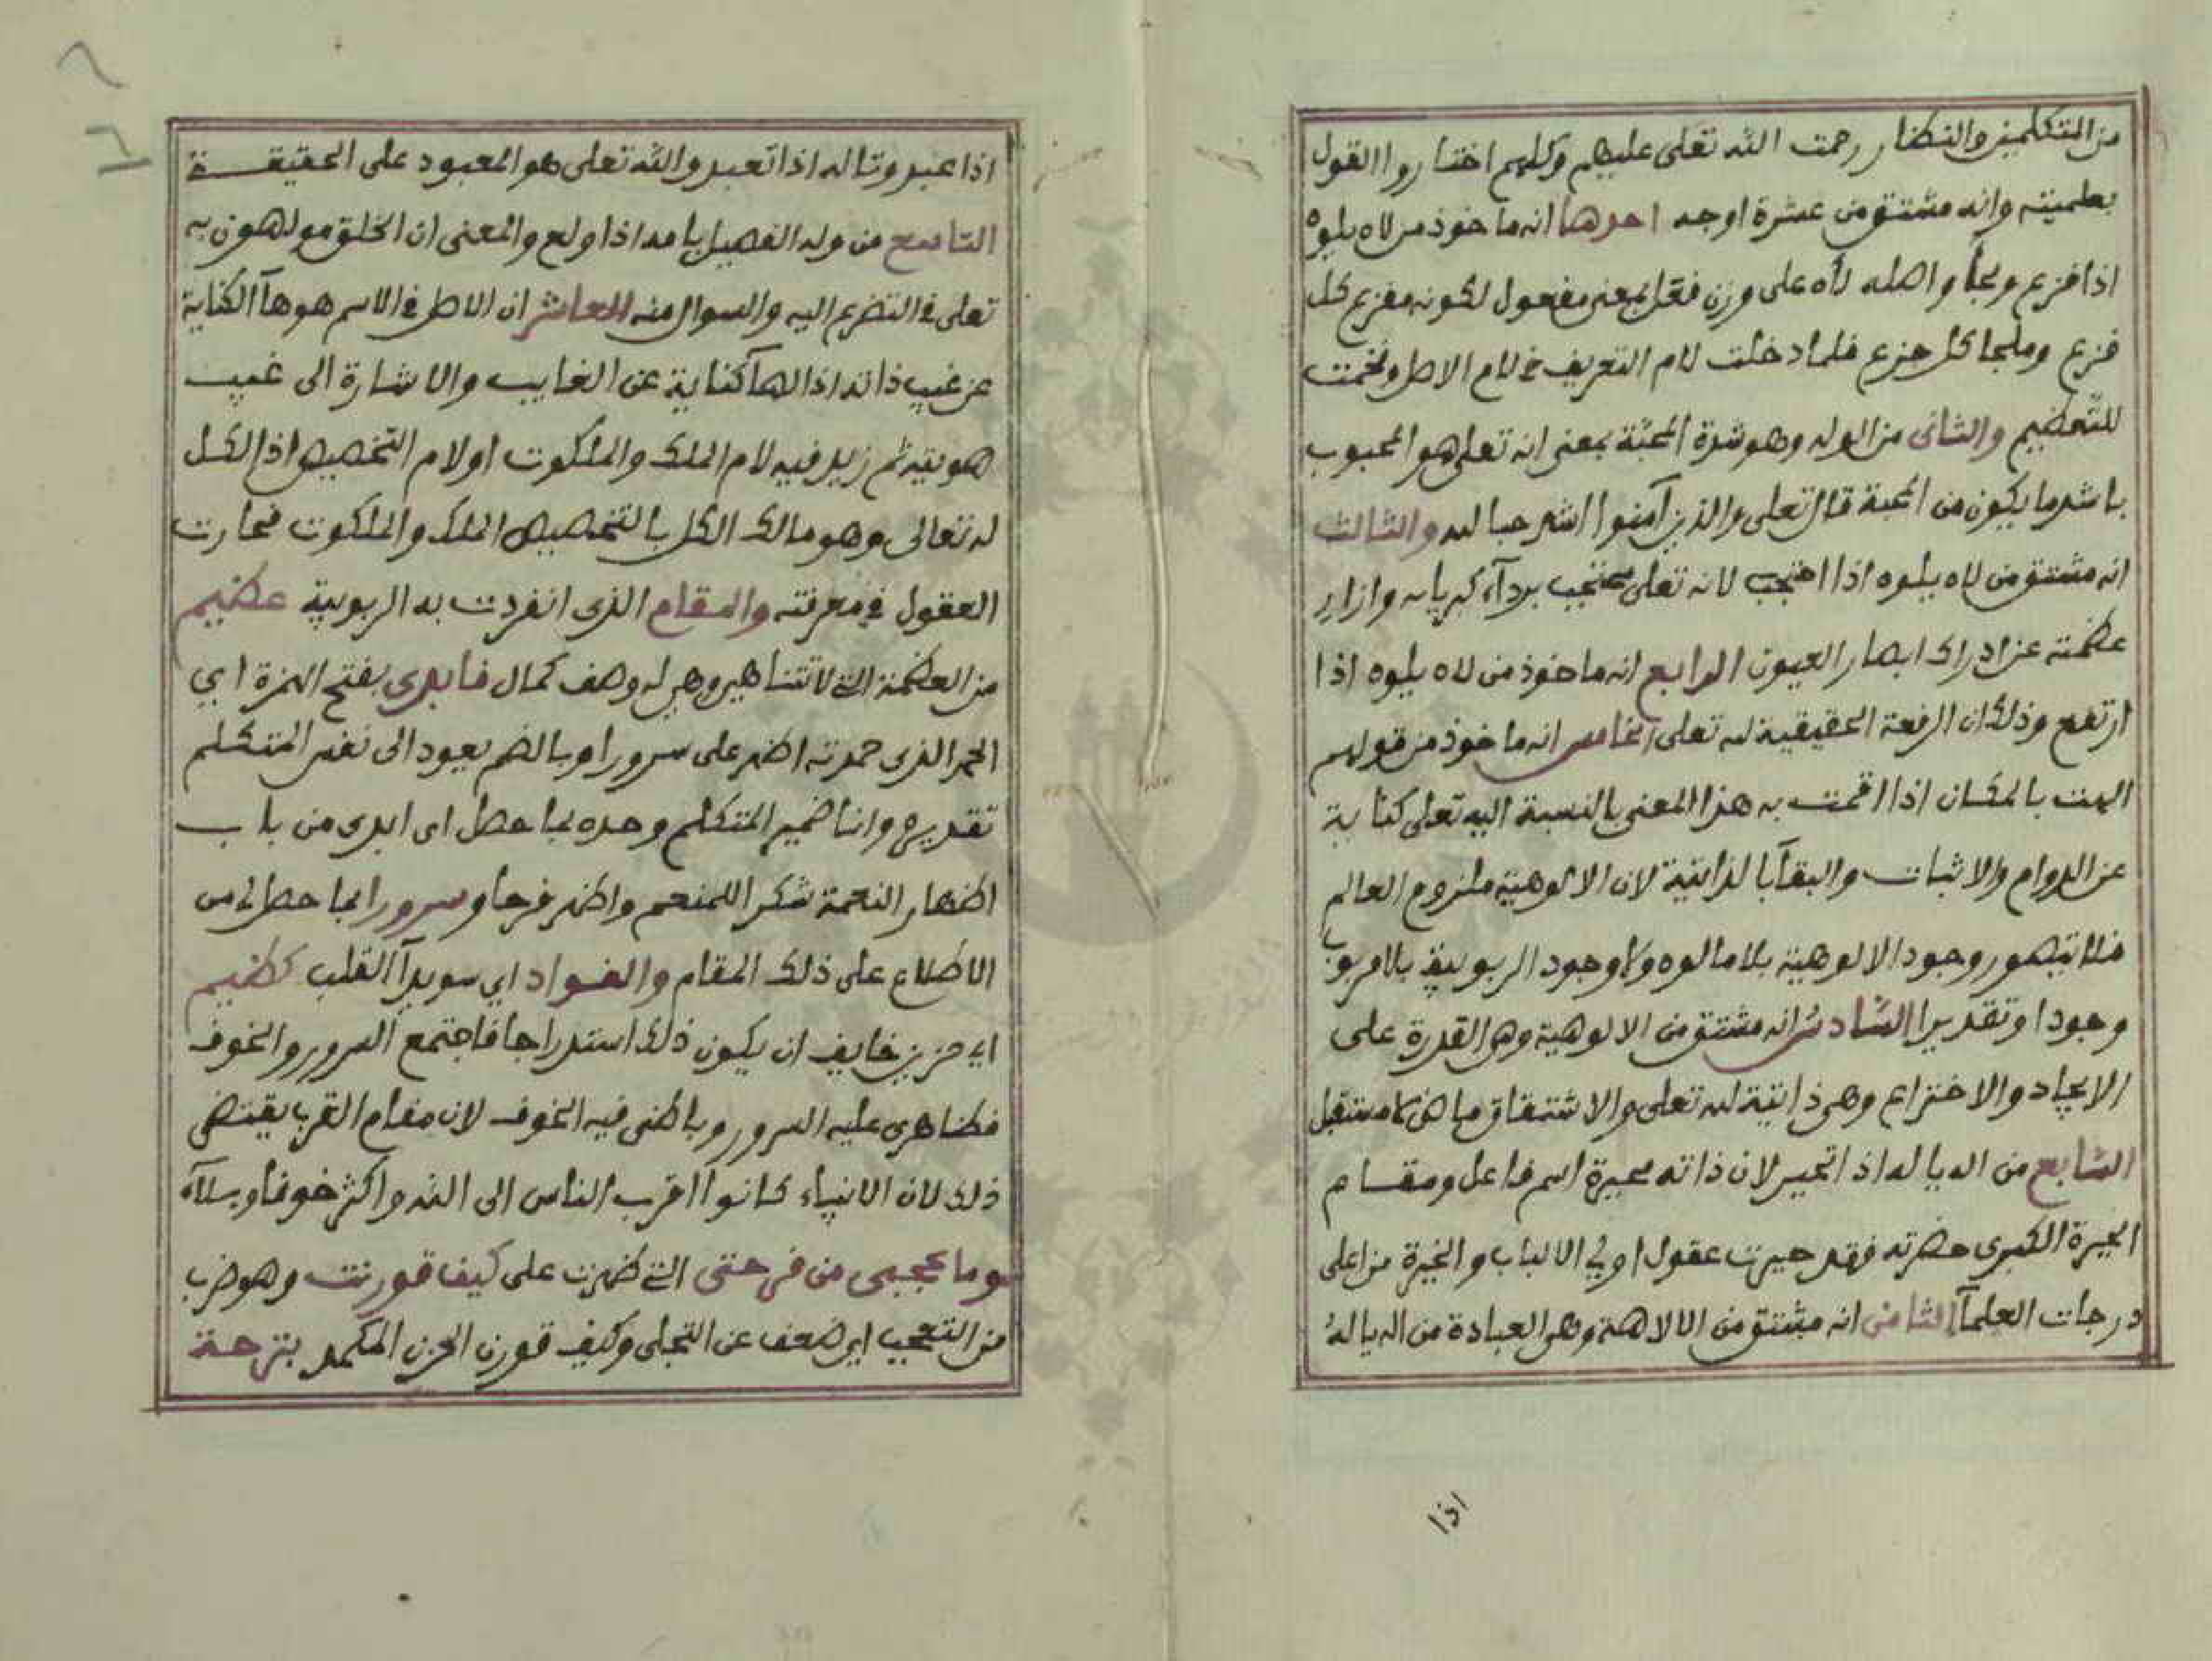 من المتكلمين والنظار رحمت الله تعلى عليهم وكلهم اختاروا القول
بعلميته وانه مشتق من عشرة اوجه احدها انه ماخوذ من لاه يلوه
اذا فزع ولجأ واصله لأه على وزن فعل بمعنى مفعول لكونه مفزع كل
فزع وملجا كل جزع فلما دخلت لام التعريف في لام الاصل وفخمت
للتعظيم والثانى من الوله وهو شدة المحبة بمعنى انه تعلى هو المحبوب
باشد ما يكون من المحبة قال تعلى والذين آمنوا اشد حبا لله والثالث
انه مشتق من لاه يلوه اذا احتجب لانه تعلى محتجب بردآء كبريايه وازار
عظمته عن ادراك ابصار العيون الرابع انه ماخوذ من لاه يلوه اذا
ارتفع وذلك ان الرفعة الحقيقية لله تعلى الخامس انه ماخوذ من قولهم
الهت بالمكان اذا اقمت به هذا المعنى بالنسبة اليه تعلى كناية
عن الدوام والاثبات والبقآء بالذاتية لان الالوهية ملزوم العالم
فلا يتصور وجود الالوهية بلا مالوه وكا وجود الربوبية بلا مربوب
وجودا وتقديرا السادس انه مشتق من الالوهية وهى القدرة على
الايجاد والاختراع وهى ذاتية لله تعلى والاشتقاق ماض كا مستقبل
السابع من اله ياله اذا تحير لان ذاته محيرة اسم فاعل ومقام
الحيرة الكبرى حضرته فقد حيرت عقول اولى الالباب والحيرة من اعلى
درجات العلمآء الثامن انه مشتق من الالاهة وهى العبادة من اله ياله
اذا
اذا عبد وتاله اذا تعبد والله تعلى هو المعبود على الحقيقة
التاسع من وله الفصيل بامه اذا ولع والمعنى ان الخلق مولهون به
تعلى في التضرع اليه والسوال منه العاشر ان الاصل في الاسم هو هآ الكناية
عن غيب ذاته اذ الها كناية عن الغايب والاشارة الى غيب
هويته ثم زيد فيه لام الملك والملكوت او لام التخصيص اذ الكل
له تعالى وهو مالك الكل بالتخصيص الملك والملكوت فحارت
العقول في معرفته والمقام الذى انفردت به الربوبية عظيم
من العظمة التى لا تتناهى وهى له وصف كمال فابدى بفتح الهمزة اي
الحمد الذى حمدته اظهر على سرورا وبالضم يعود الى نفس المتكلم
تقديره وانا ضمير المتكلم وحده بما حصل اى ابدى من باب
اظهار النعمة شكرا للمنعم واظهر فرحا وسرورا بما حصل لى من
الاطلاع على ذلك المقام والفواد اي سويدآ القلب كظيم
اي حزين خايف ان يكون ذلك استدراجا فاجتمع السرور والخوف
فظاهرى عليه السرور وباطنى فيه الخوف لان مقام القرب يقتضى
ذلك لان الانبياء كانوا اقرب الناس الى الله واكثر خوفا وبلآء
وما عجبى من فرحتى التى ظهرت على كيف قورنت وهو ضرب
من التعجب اي ضعف عن التجلى وكيف قورن الحزن المكمد بترحة